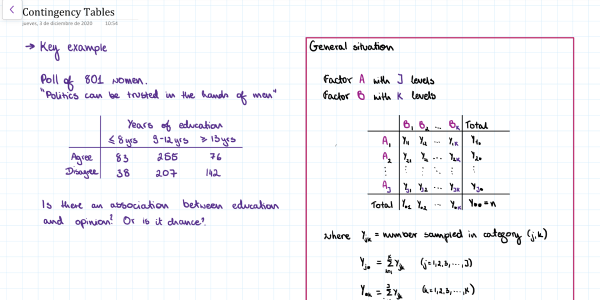 Contingency Tables
jueves, 3 de diciembre de 2020 10:54
→ Key example
Poll of 801 women.
"Politics can be trusted in the hands of men"
Years of education
≤ 8 yrs 9-12 yrs ≥ 13 yrs
Agree 83 255 76
Disagree 38 207 142
Is there an association between education
and opinion? Or is it chance?
General situation
Factor A with J levels
Factor B with K levels
B₁ B₂ ... Bₖ Total
A₁ Y₁₁ Y₁₂ ... Y₁ₖ Y₁₀
A₂ Y₂₁ ... Y₂ₖ Y₂₀
⋮ ⋮ ⋮ ⋱ ⋮ ⋮
A_J Y_J1 Y_J2 ... Y_JK Y_J0
Total Y₀₁ Y₀₂ ... Y₀ₖ Y₀₀ = n
where Y_jk = number sampled in category (j,k)
Y_j0 = Σ Y_jk (j=1,2,3,...,J)
Y_0k = Σ Y_jk (k=1,2,3,...,K)